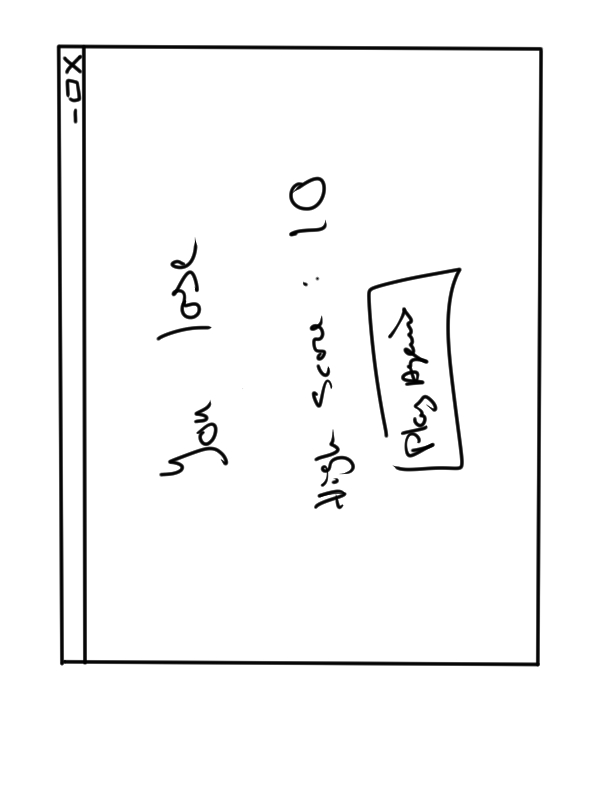 You lose
High Score : 10
Play Again